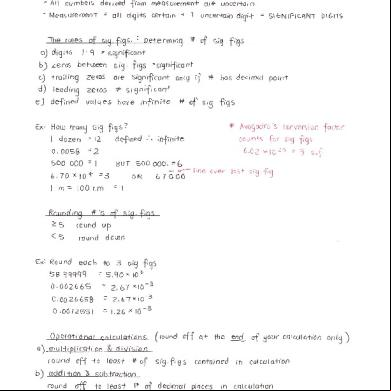 - All numbers derived from measurement are uncertain
- Measurement = all digits certain + 1 uncertain digit = SIGNIFICANT DIGITS
The rules of sig figs: determing # of sig figs
a) digits 1-9 = significant
b) zeros between sig figs = significant
c) trailing zeros are significant only if # has decimal point
d) leading zeros ≠ significant
e) defined values have infinite # of sig figs
Ex: How many sig figs?
1 dozen = 12 defined ∴ infinite
0.0056 = 2
500 000 = 1 BUT 500 000. = 6
6.70 × 10⁴ = 3 OR 67000
line over last sig fig
1 m = 100 cm = 1
* Avogadro's conversion factor
counts for sig figs
6.02 × 10²³ = 3 s.f
Rounding #'s of sig figs
≥5 round up
<5 round down
Ex: Round each to 3 sig figs
0.002665 = 2.67 × 10⁻³
Operational calculations (round off at the end of your calculation only)
a) multiplication & division
round off to least # of sig figs contained in calculation
b) addition & subtraction
round off to least # of decimal places in calculation